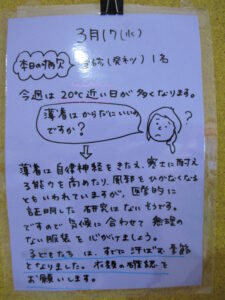 3月17(水)
本日の病欠 3歳(発ネツ) 1名
今週は20℃近い日が多くなります。
薄着はからだにいいの
ですか?
?
薄着は自律神経をきたえ、寒さに耐え
る能力を高めたり、風邪をひかなくなる
ともいわれていますが、医学的に
証明した研究はないそうです。
ですので気候に合わせて無理の
ない服装を心がけましょう。
子どもたちは、すでに汗ばむ季節
となりました。衣類の確認を
お願いします。